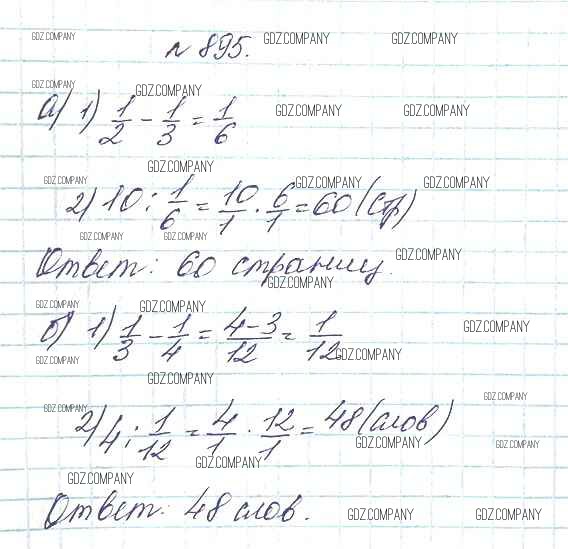 GDZ.COMPANY GDZ.COMPANY GDZ.COMPANY
№ 895.
GDZ.COMPANY GDZ.COMPANY
а) 1) 1/2 - 1/3 = 1/6
GDZ.COMPANY GDZ.COMPANY
GDZ.COMPANY
GDZ.COMPANY GDZ.COMPANY GDZ.COMPANY
2) 10 : 1/6 = 10/1 · 6/1 = 60 (стр)
GDZ.COMPANY GDZ.COMPANY
Ответ: 60 страниц.
GDZ.COMPANY
GDZ.COMPANY
GDZ.COMPANY GDZ.COMPANY
б) 1) 1/3 - 1/4 = 4-3/12 = 1/12
GDZ.COMPANY
GDZ.COMPANY GDZ.COMPANY
GDZ.COMPANY
GDZ.COMPANY
GDZ.COMPANY
2) 4 : 1/12 = 4/1 · 12/1 = 48 (слов)
GDZ.COMPANY GDZ.COMPANY
GDZ.COMPANY
GDZ.COMPANY
Ответ: 48 слов.
GDZ.COMPANY GDZ.COMPANY